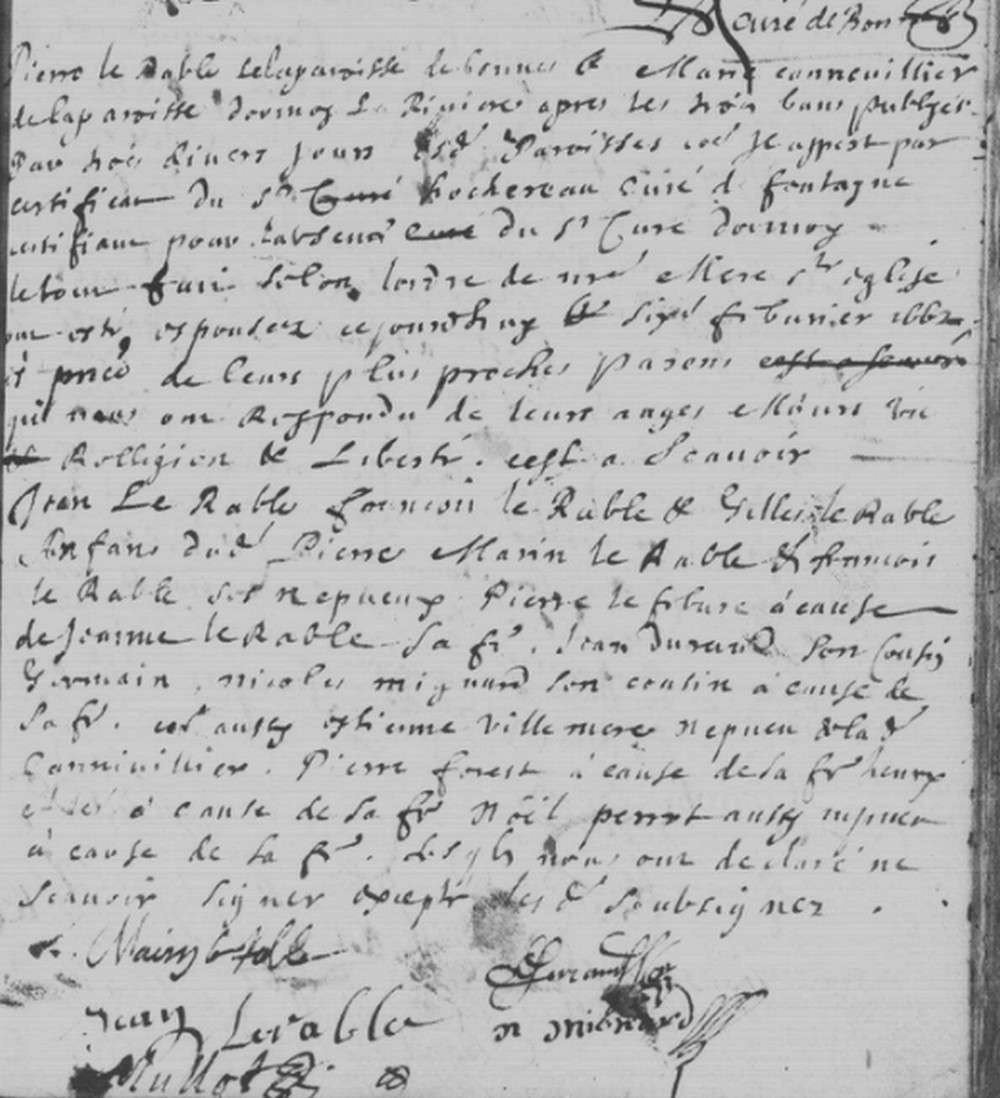 Curé de Bon
Pierre le Rable de la paroisse de bonnes & Marie connevillier
de la paroisse dormoy La Riviere apres les trois bans publyés
Par trois divers jours esd Paroisses coe Il appert par
certificat du Sr Curé hochereau Curé d fontayne
certifiant pour labsence Curé du Sr Curé dormoy
le tout fait selon lordre de nre Mere Ste eglise
ont esté espousez ce jourdhuy & sixe febvrier 1662
et pnce de leurs plus proches Parens cest a scavoir
qui nous ont Respondu de leurs aages Meurs vie
et Relligion & Liberté. cest a Scavoir
Jean Le Rable francois le Rable & Gilles le Rable
Enfans dud Pierre Marin le Rable & francois
le Rable ses nepueux Pierre lefebure à cause
de Jeanne le Rable sa fe. Jean Durand son Cousin
Germain, nicolas mignard son cousin à cause de
sa fe. coe aussy estienne Villemere nepueu de lad
Connivillier. Pierre forest à cause de sa fe henry
à cause de sa fe Noël perrot aussy nepueu
à cause de sa fe. Lesqls nous ont declaré ne
scavoir signer excepté les d soubsignez.
Jean Lerable
n mignard